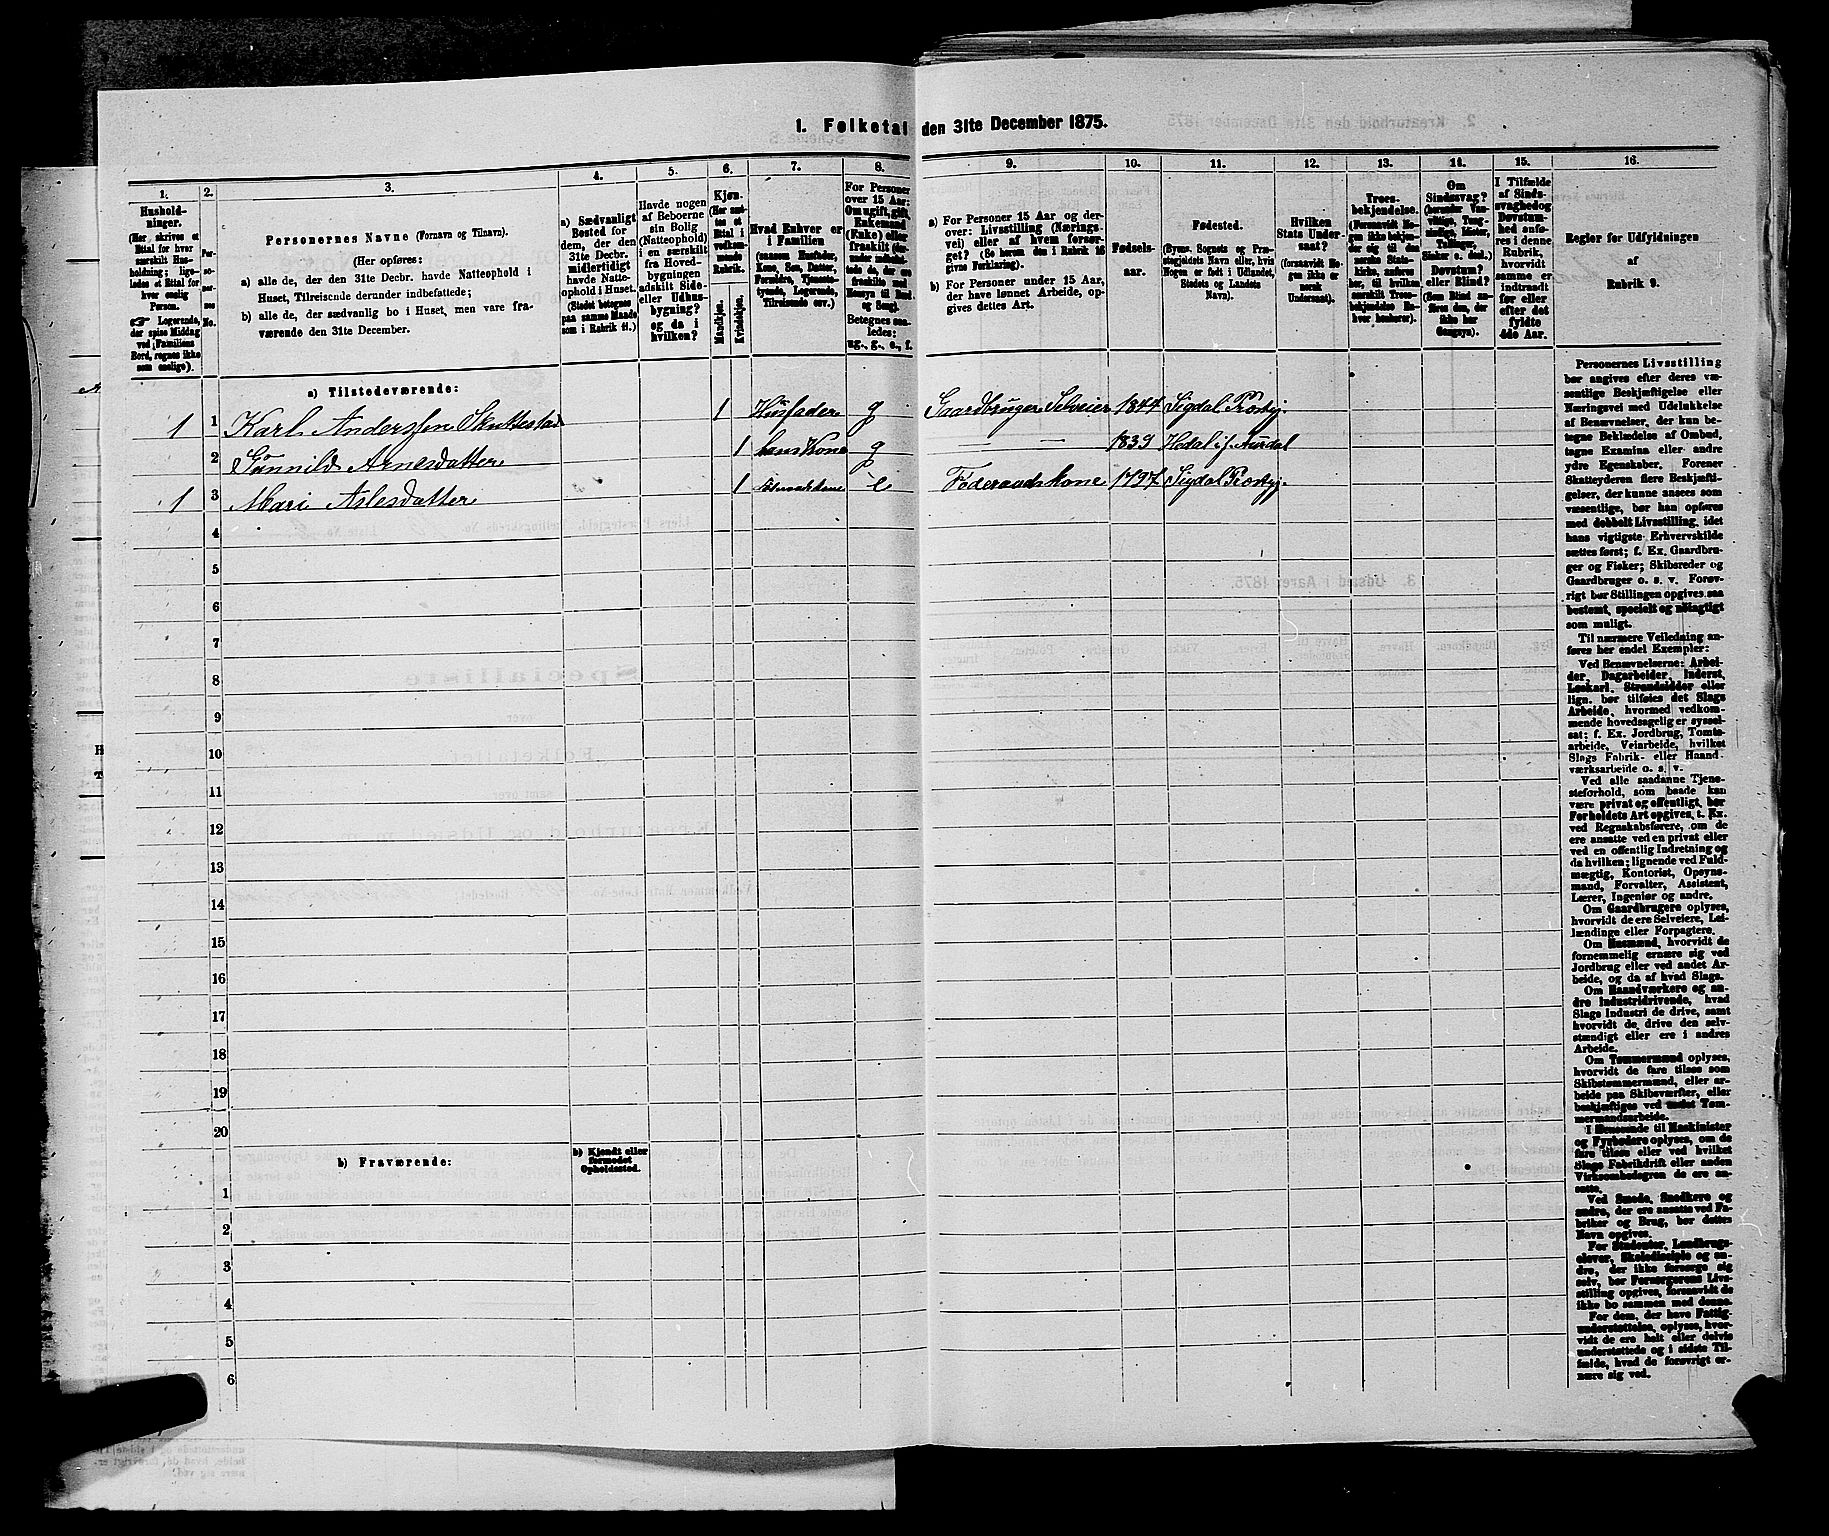 1. Folketal den 31te December 1875.
1.
Hushold-
ninger.
(Her skrives et
Ettal for hver
særskilt Hus-
holdning; lige-
ledes et Ettal for
hver enslig
Person.
☞ Logerende,
der spise Middag
ved Familiens
Bord, regnes ikke
som enslige).
2.
Per-
so-
ner-
nes
No.
3.
Personernes Navne (Fornavn og Tilnavn).
(Her opføres:
a) alle de, der den 31te Decbr. havde Natteophold i
Huset, Tilreisende derunder indbefattede;
b) alle de, der sædvanlig bo i Huset, men vare fra-
værende den 31te December.
4.
a) Sædvanligt
Bosted for
dem, der den
31te Decbr.
midlertidigt
havde Natte-
ophold i Huset.
(Stedet betegnes
paa samme Maade
som i Rubrik 11.)
5.
Havde nogen
af Beboerne
sin Bolig
(Natteophold)
i en særskilt
fra Hoved-
bygningen
adskilt Side-
eller Udhus-
bygning?
og da i
hvilken?
6.
Kjøn.
(Her sæt-
tes et
Ettal i
vedkom-
mende
Rubrik.
Mandkjøn.
Kvindekjøn.
7.
Hvad Enhver er
i Familien
(saasom Husfader,
Kone, Søn, Datter,
Forældre, Tjeneste-
tyende, Logerende,
Tilreisende osv.)
8.
For Personer
over 15 Aar:
Om ugift, gift,
Enkemand
(Enke) eller
fraskilt
Betegnes saa-
ledes:
ug., g., e., f.
9.
a) For Personer 15 Aar og der-
over: Livsstilling (Nærings-
vei) eller af hvem forsør-
get? (Se herom den i Rubrik 16
givne Forklaring).
b) For Personer under 15 Aar,
der have lønnet Arbeide, op-
gives dettes Art.
10.
Fødsels-
aar.
11.
Fødested.
(Byens, Sognets og Præ-
stegjeldets Navn eller, hvis
Nogen er født i Udlandet,
Stedets og Landets
Navn).
12.
Hvilken
Stats Under-
saat?
(forsaavidt No-
gen ikke er
norsk
Undersaat).
13.
Troes-
bekjendelse.
(Forsaavidt No-
gen ikke bekjen-
der sig til den
norske Stats-
kirke, anføres
her, til hvilket
særskilt Troes-
bekjendelse En-
hver henhører).
14.
Om
Sindssvag?
Døvstum?
eller Blind?
15.
I Tilfælde
af Sinds-
svaghed og
Døvstum-
hed anfø-
res i denne
Rubrik,
hvorvidt
samme er
indtraadt
før eller
efter det
fyldte
4de Aar.
16.
Regler for Udfyldningen
af
Rubrik 9.
a) Tilstedeværende:
1 1 Karl Anderssen Skuttestad 1 Husfader g Gaardbruger Selveier 1844 Sigdal Prstgj.
2 Gunnild Arnesdatter 1 hans Kone g — — 1839 Hedal i S. Aurdal
1 3 Mari Aslesdatter 1 e Føderaadskone 1797 Sigdal Prstgj.
4
5
6
7
8
9
10
11
12
13
14
15
16
17
18
19
20
b) Fraværende:
b) Kjendt eller
formodet
Opholdssted.
1
2
3
4
5
6
Personernes Livsstilling
bør angives efter deres væ-
sentlige Beskjæftigelse eller
Næringsvei med Udelukkelse
af Benævnelser, der kun be-
tegne Beklædelse af Ombud,
tagne Examina eller andre
ydre Egenskaber. Forener
Skatteyderen flere Beskjæfti-
gelser, der kunne ansees som
væsentlige, bør han opføres
med dobbelt Livsstilling, idet
hans vigtigste Erhvervskilde
sættes først; f. Ex. Gaardbru-
ger og Fisker; Skibsreder og
Gaardbruger o. s. v. Forøv-
rigt bør Stillingen opgives saa
bestemt, specielt og nøiagtigt
som muligt.
Til nærmere Veiledning an-
føres her endel Exempler:
Ved Benævnelserne: Arbei-
der, Dagarbeider, Inderst,
Løskarl, Strandsidder eller
lign. bør tilføies det Slags
Arbeide, hvormed vedkom-
mende hovedsagelig er syssel-
sat; f. Ex. Jordbrug, Tomte-
arbeide, Veiarbeide, hvilket
Slags Fabrik- eller Haand-
værksarbeide o. s. v.
Ved alle saadanne Tjene-
steforhold, som baade kan
være privat og offentligt, bør
Forholdets Art opgives, f. Ex.
ved Regnskabsførere, om de
ere ansatte ved en privat eller
ved en offentlig Indretning og
da hvilken; lignende ved Fuld-
mægtig, Kontorist, Opsyns-
mand, Forvalter, Assistent,
Lærer, Ingeniør og andre.
Om Gaardbrugere oplyses,
hvorvidt de ere Selveiere, Lei-
lændinge eller Forpagtere.
Om Husmænd, hvorvidt de
fornemmelig ernære sig ved
Jordbrug eller ved andet Ar-
beide, og da af hvad Slags.
Om Haandværkere og an-
dre Industridrivende, hvad
Slags Industri de drive, samt
hvorvidt de drive den selv-
stændigt eller ere i andres
Arbeide.
Om Tømmermænd oplyses,
hvorvidt de fare tilsøs som
Skibstømmermænd, eller ar-
beide paa Skibsværfter, eller
beskjæftiges ved andet Tøm-
mermandsarbeide.
I Henseende til Maskinister
og Fyrbødere oplyses, om de
fare tilsøs eller ved hvilket
Slags Fabrikdrift eller anden
Virksomhedsgren de ere an-
satte.
Ved Smede, Snedkere og
andre, der ere ansatte ved Fa-
briker og Brug, bør dettes
Navn opgives.
For Studenter, Landbrugs-
elever, Skoledisciple og an-
dre, der ikke forsørge sig
selv, bør Forsørgerens Livs-
stilling opgives, forsaavidt de
ikke bo sammen med denne.
For dem, der have Fattig-
understøttelse, oplyses, hvor-
vidt de ere helt eller delvis
understøttede og i sidste Til-
fælde, hvad de forøvrigt er-
nære sig ved.